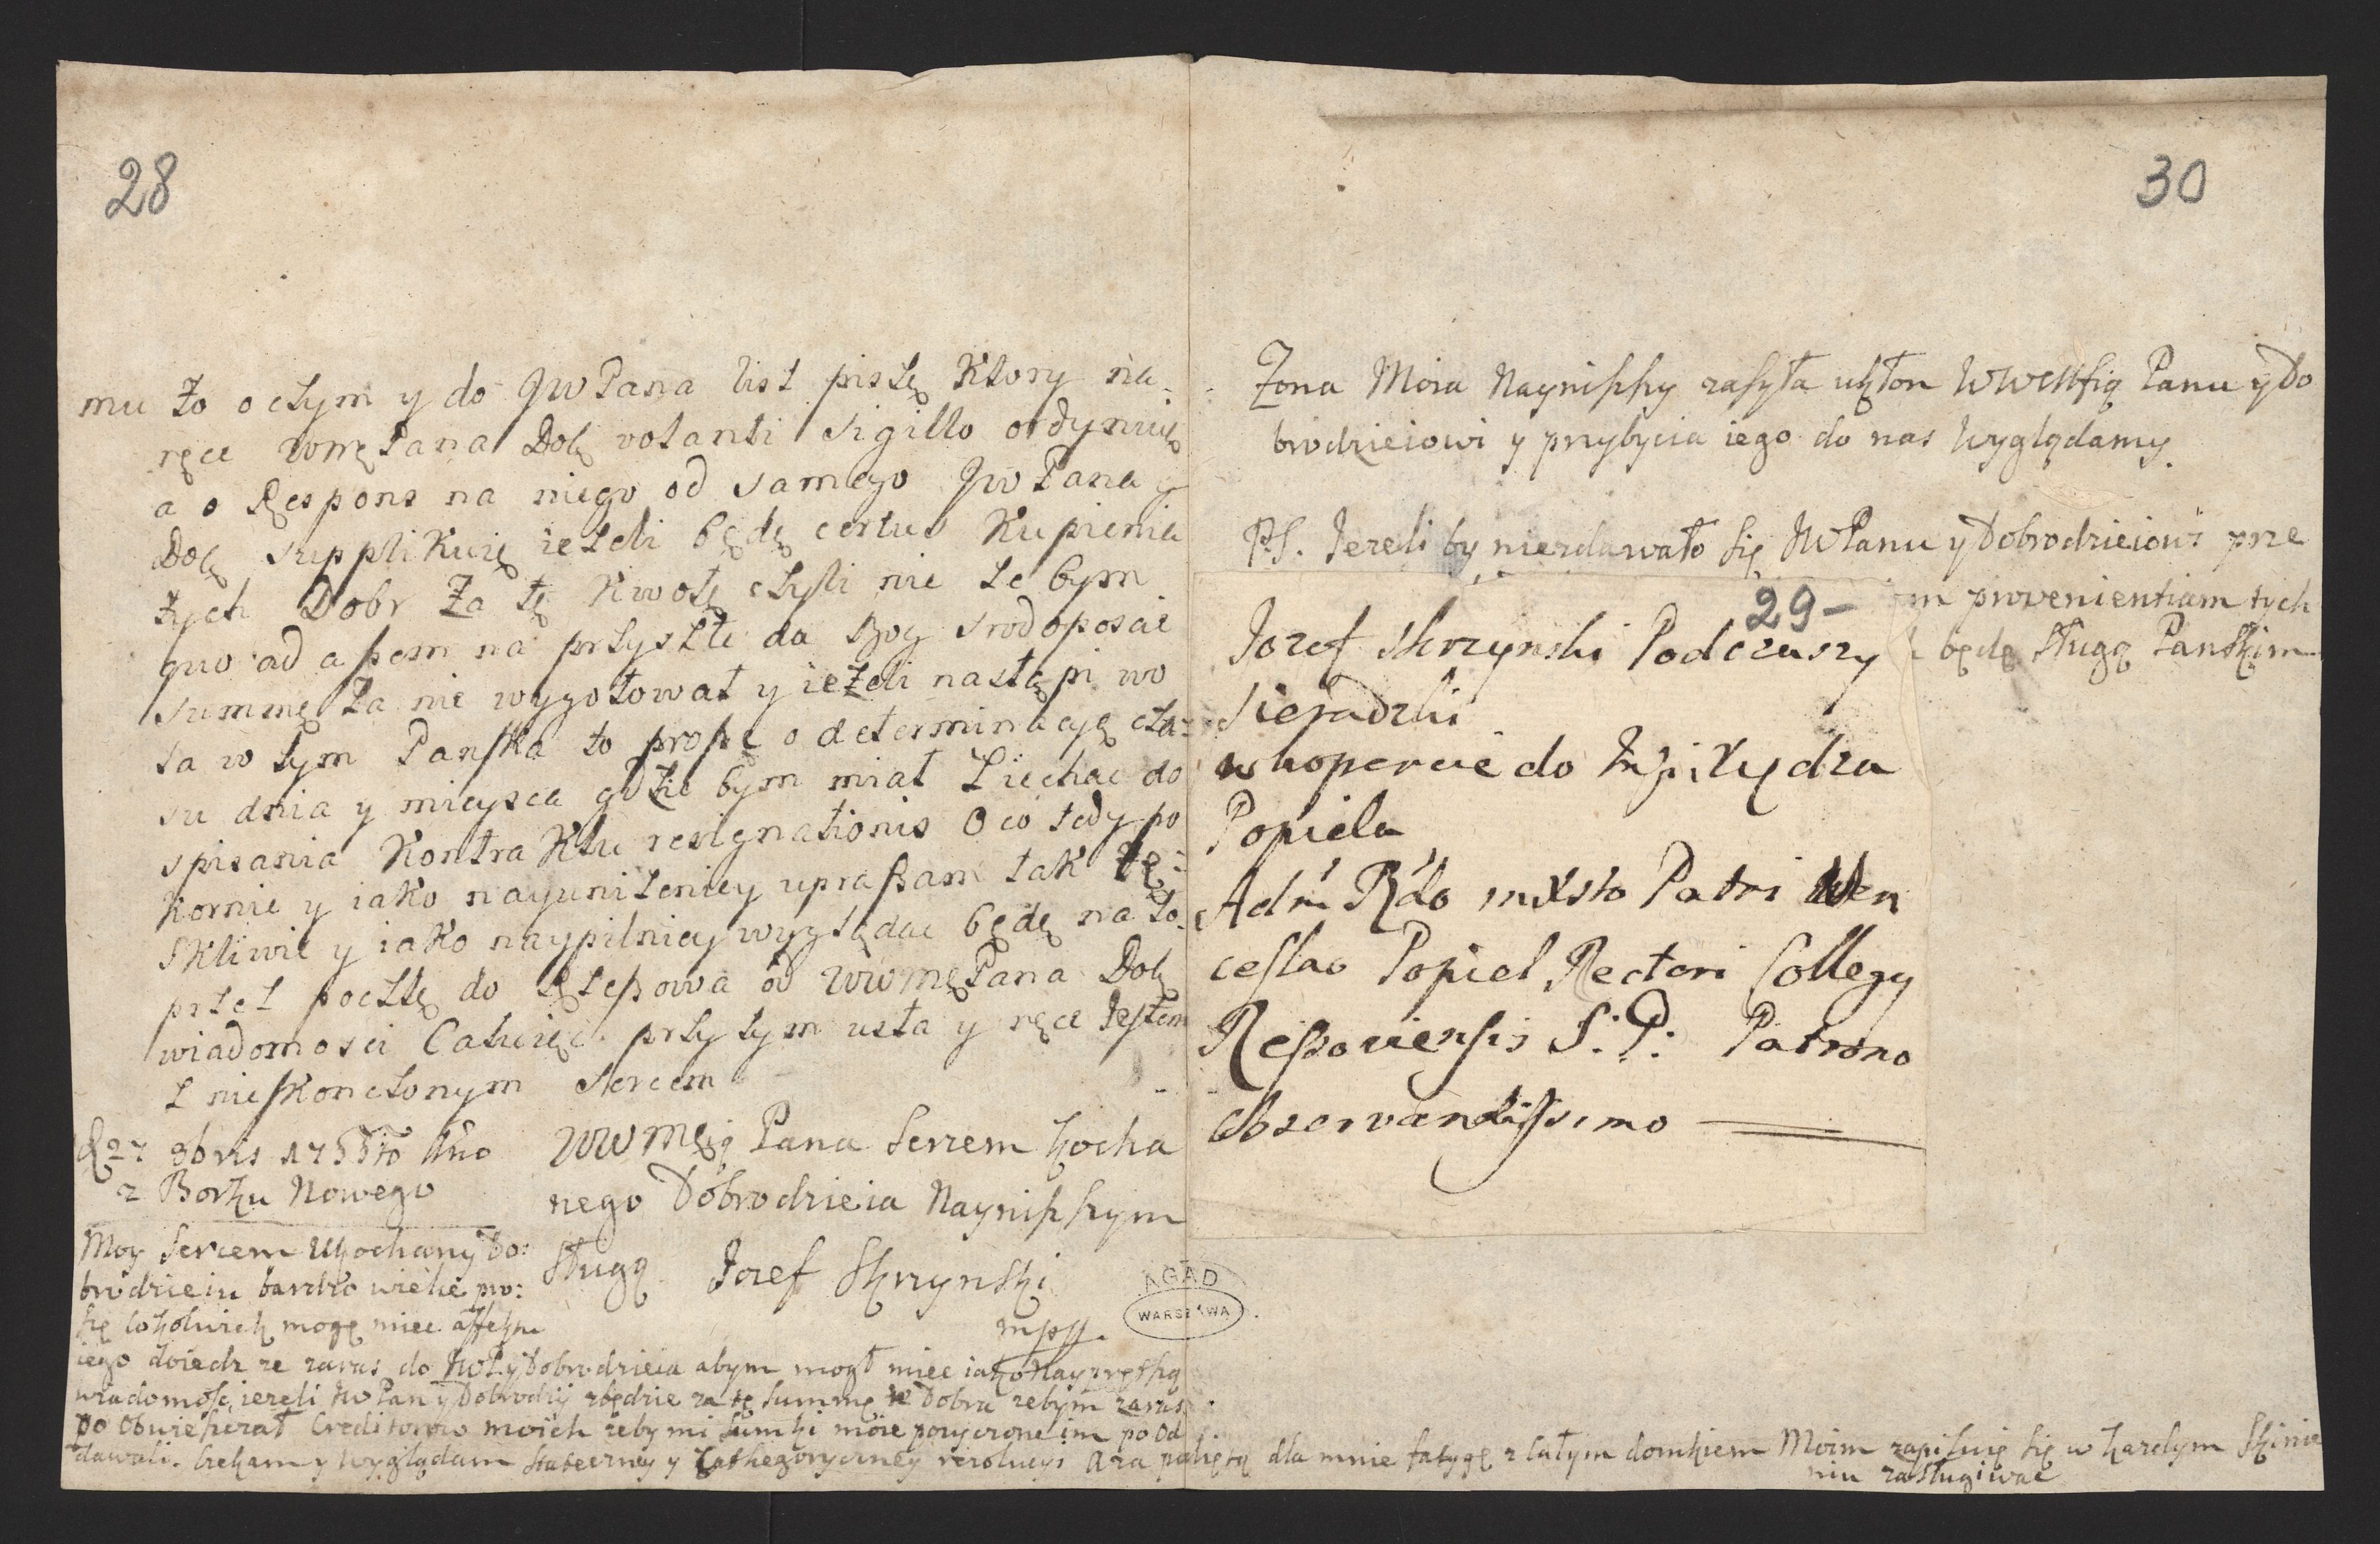 28
mu żo o czym y do JWPana list piszę Ktory na
ręce WmęPana Dolę volanti sigillo ordynuię
a o Respons na niego od samego JWPana y
Dolę supplikuię ieżeli będę certus Kupienia
tych Dobr za tę Kwotę czyli nie żebym
quo ad aßem na przyszłe da Bog srodoposcie
summę za nie wygotował y ieżeli nastąpi wo
la w tym Panſka to proßę o determinacyę cza-
su dnia y mieysca gdzie bym miał ziechac do
spisania Kontraktu resignationis O co tedy po
kornie y iako nayuniżeniey upraßam tak tę-
skliwie y iako naypilniey wyglądac będę na to
przez pocztę do Rzeßowa od WWmęPana Dolę
wiadomosci Całuiąc przy tym usta y ręce Jeſtem
z nieſkonczonym sercem
WWMęią Pana Sercem kocha
nego Dobrodzieia Nayniższym
Sługą Jozef Skrzynski
mpp.
D 27 9bris 1755to Ano
z Borku Nowego
Moy Sercem Ukochany Do:
brodzieiu bardzo wielie pro:
szę cokolwiek mogę miec affektu
iego doiedz ze zaras do JWPyDobrodzieia abym mogł miec iako Nayprętką
wiadomosc, iezeli JWPan y Dobrodzy zbędzie za tę summę te Dobra zebym zaras
po obwießczał Creditorow moich zeby mi sumki moie pozyczone im po od
dawali. Czekam y wyglądam stateczney y Cathegoryczney rezolucyi a za podiętą dla mnie fatygę z całym domkiem Moim zapisuię się w kazdym Skinie
niu zasługiwac
AGAD
WARSZAWA
30
Zona Moia Nayniższy zasyła ukłon WWMMſią Panu y Do
brodzieiowi y przybycia iego do nas wyglądamy.
P.S. Jezeli by niezdawało się JWPanu y Dobrodzieiowi prze
m provenientiam tych
będę Sługą Panskim
29-
Jozef Skrzynski Podczaszy
Sieradzki
w kopercie do Jmsci Xiędza
Popiela
Adm Rdo in Xsto Patri Wen
ceslao Popiel Rectori Collegy
Reßoviensis S: P: Patrono
observandissimo